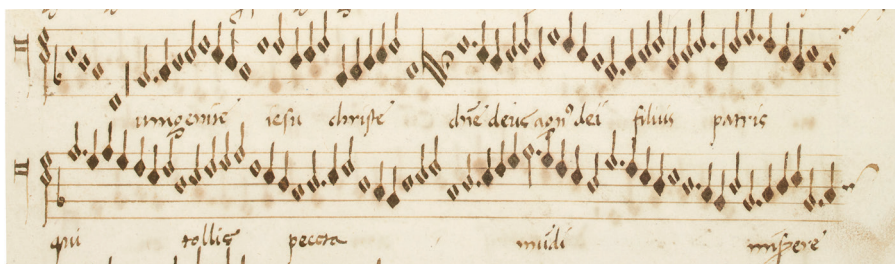 unigenite iesu christe chṙe deus agn⁹ dei filius patris
qui tollis peccta mūdi misere